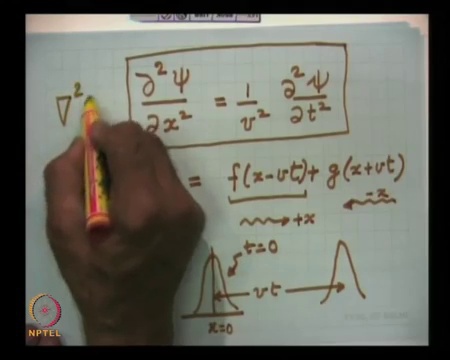 ∇²
∂²ψ/∂x² = 1/v² ∂²ψ/∂t²
= f(x-vt) + g(x+vt)
→ +x
-x
t=0
vt
x=0
NPTEL